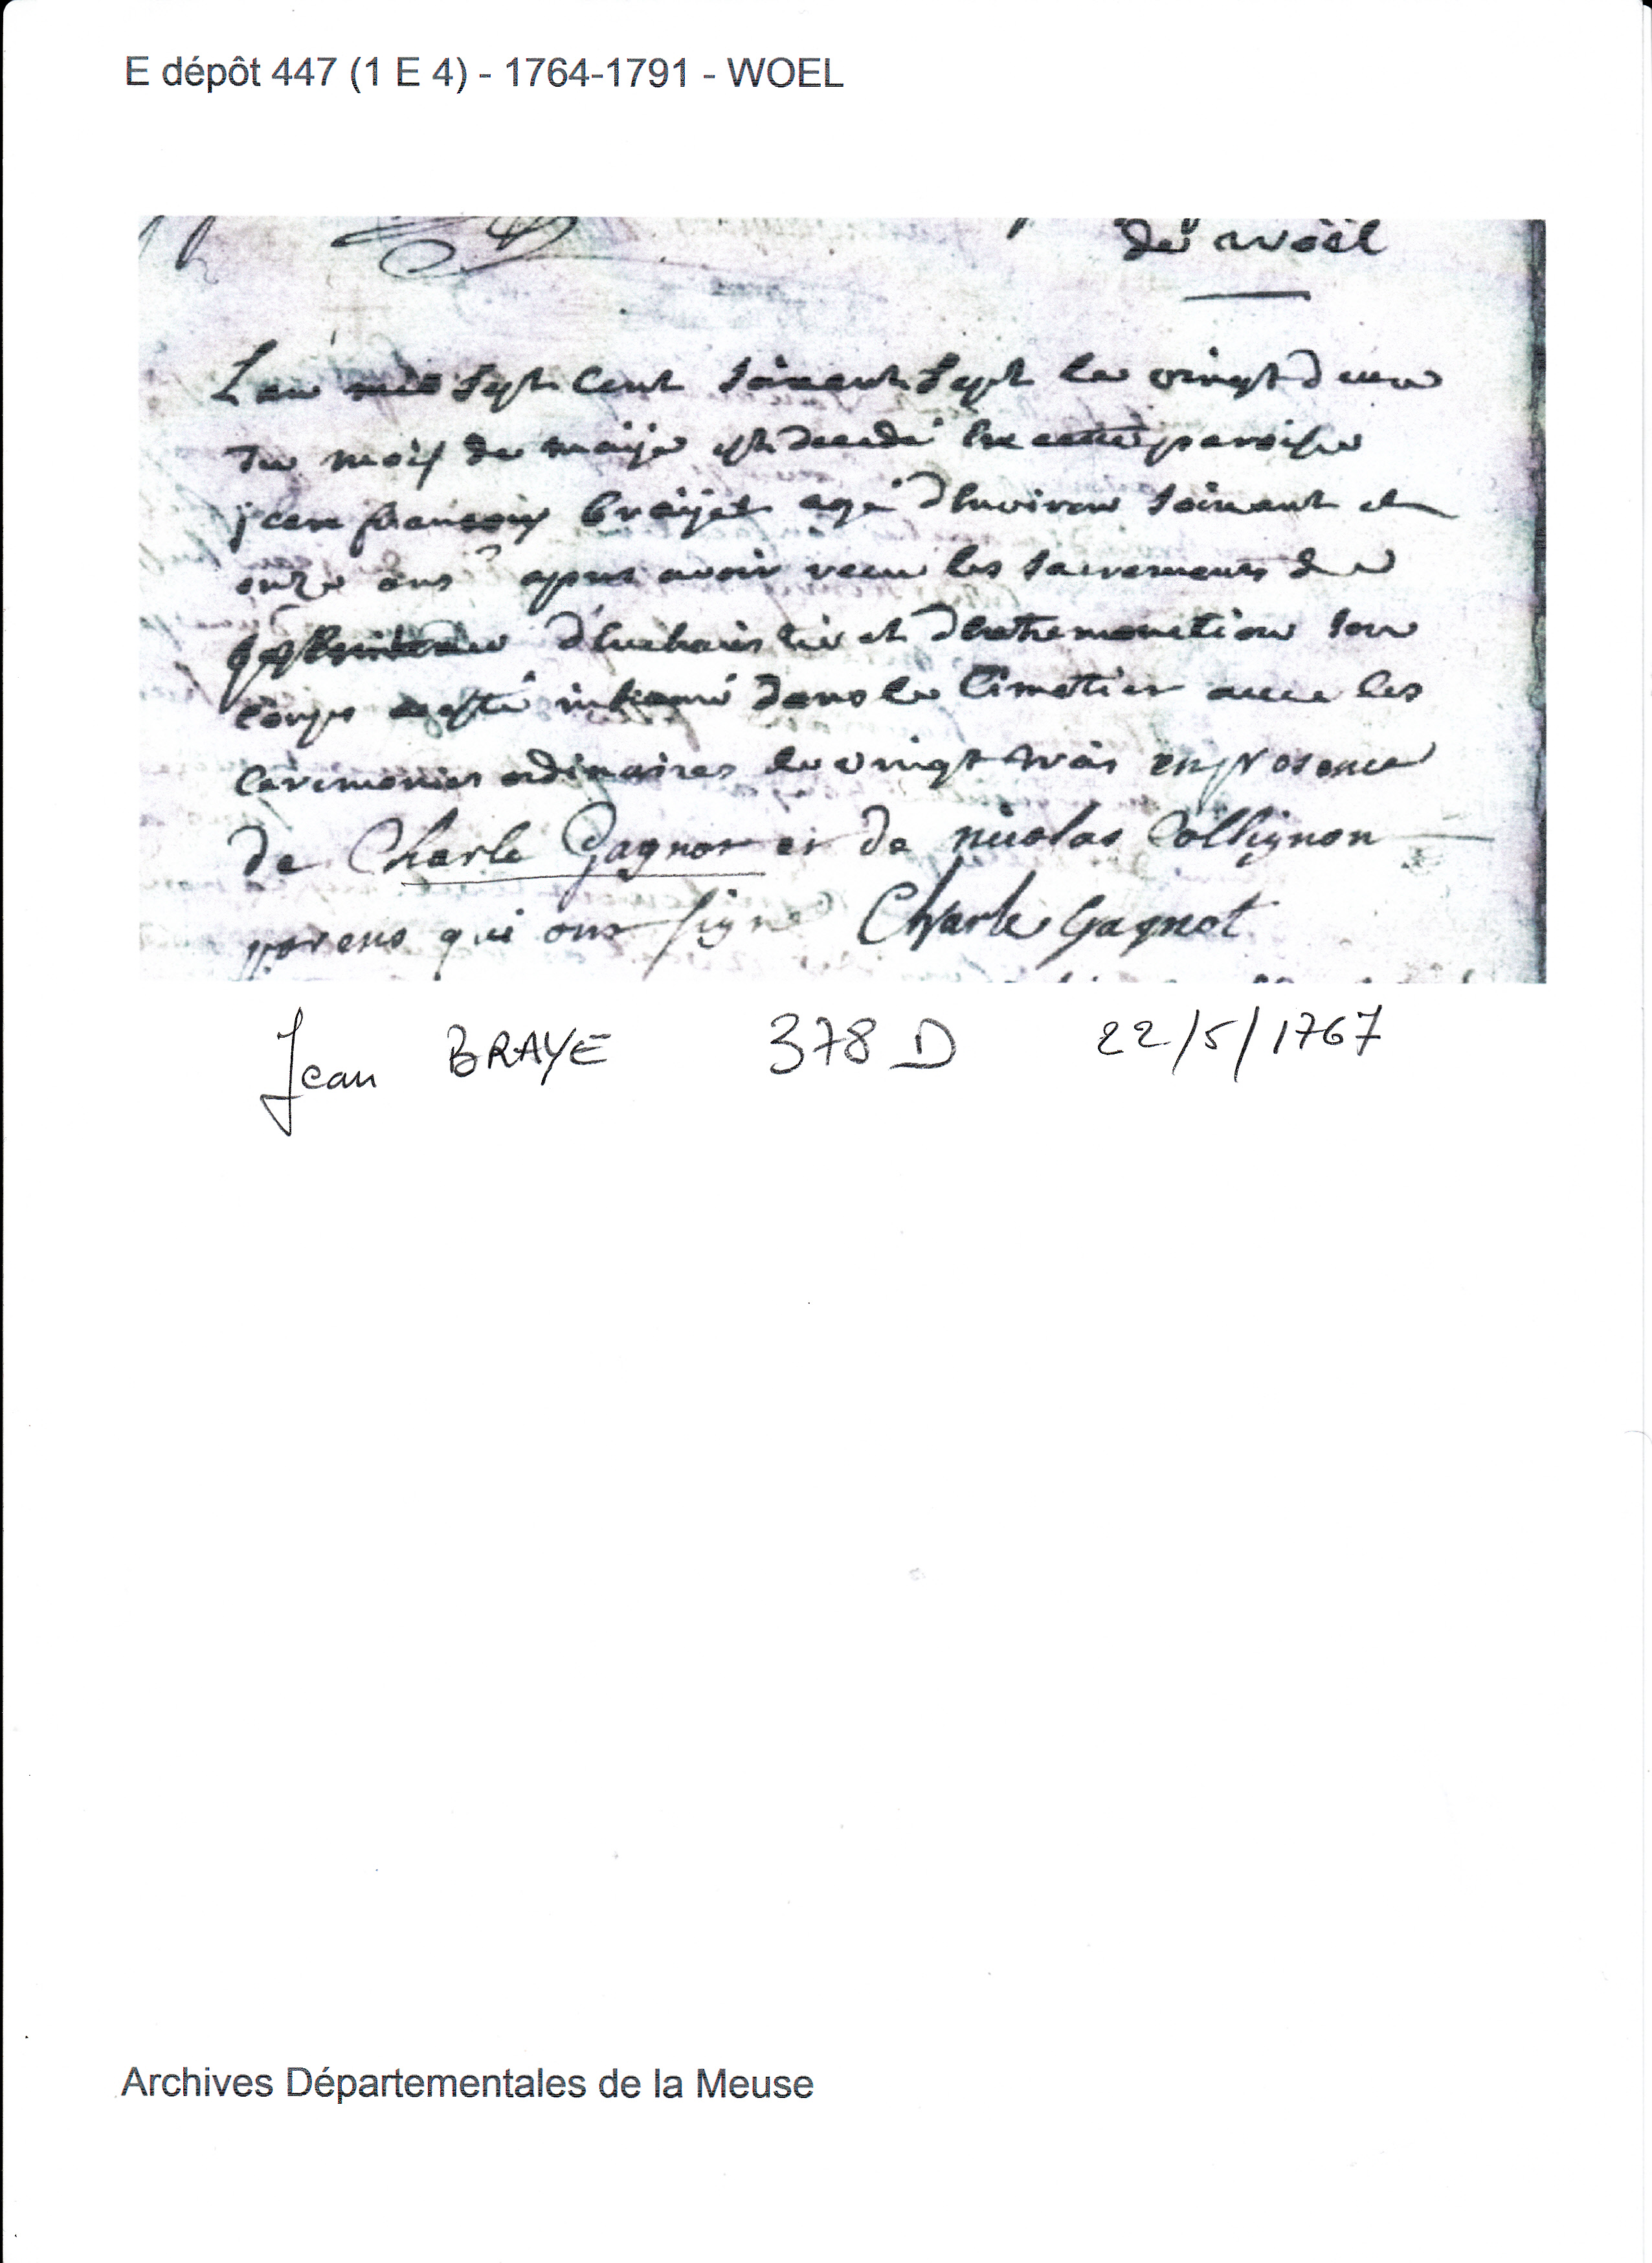 E dépôt 447 (1 E 4) - 1764-1791 - WOEL
de woël
L'an mil sept cent soixant sept le vingt deux
du mois de maije est decedé en cette paroisse
jean francois braijet agé d'environ soixant et
onze ans apres avoir recu les sacrements de
d'eucharistie et d'extremonction son
corps a esté inhumé dans le cimetier avec les
ceremonies ordinaires le vingt trois en presence
de Charle Gagnot et de nicolas Collignon
parens qui ont signé Charle Gagnot
Jean BRAYE 378 D 22/5/1767
Archives Départementales de la Meuse